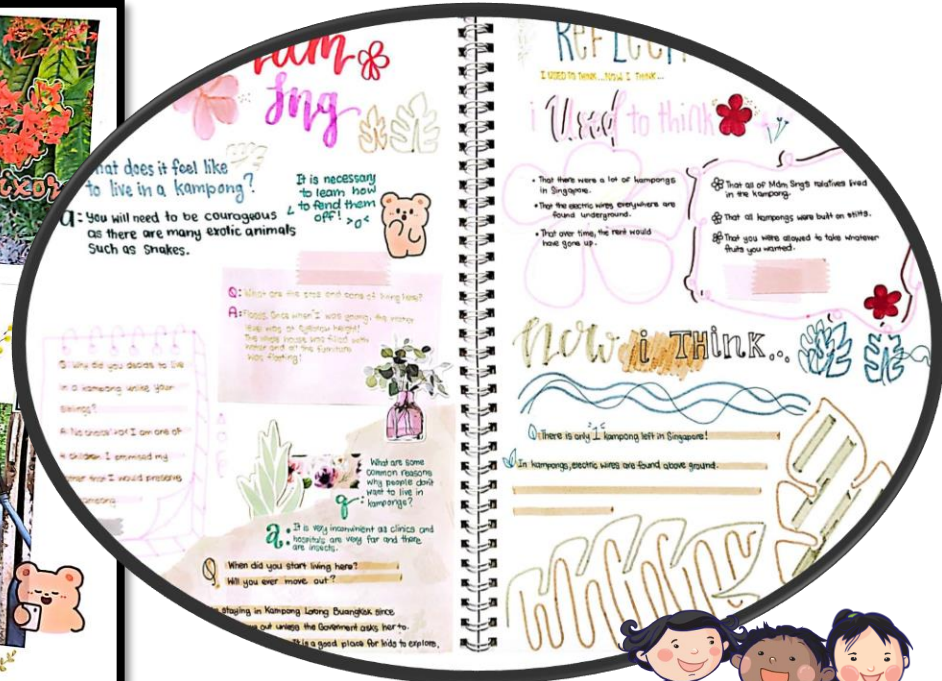 Sng
hat does it feel like
to live in a kampong?
It is necessary
to learn how
to fend them
off! >o<
a: You will need to be courageous
as there are many exotic animals
such as snakes.
Q: What are the pros and cons of living here?
A: Floods. Once when I was young, the water
level was at eyebrow height!
The whole house was filled with
water and all the furniture
was floating!
Q: Why did you decide to live
in a kampong unlike your
siblings?
A: No choice! For I am one of
4 children. I promised my
that I would preserve
What are some
common reasons
why people don't
want to live in
q: kampongs?
a: It is very inconvinient as clinics and
hospitals are very far and there
are insects.
Q. When did you start living here?
Will you ever move out?
staying in Kampong Lorong Buangkok since
out unless the Government asks her to.
It is a good place for kids to explore.
I USED TO THINK...NOW I THINK...
i Used to think
• That there were a lot of kampongs
in Singapore.
• That the electric wires everywhere are
found underground.
• That over time, the rent would
have gone up.
That all of Mdm Sng's relatives lived
in the kampong.
That all kampongs were built on stilts.
That you were allowed to take whatever
fruits you wanted.
Now i THINK...
There is only 1 kampong left in Singapore!
In kampongs, electric wires are found above ground.